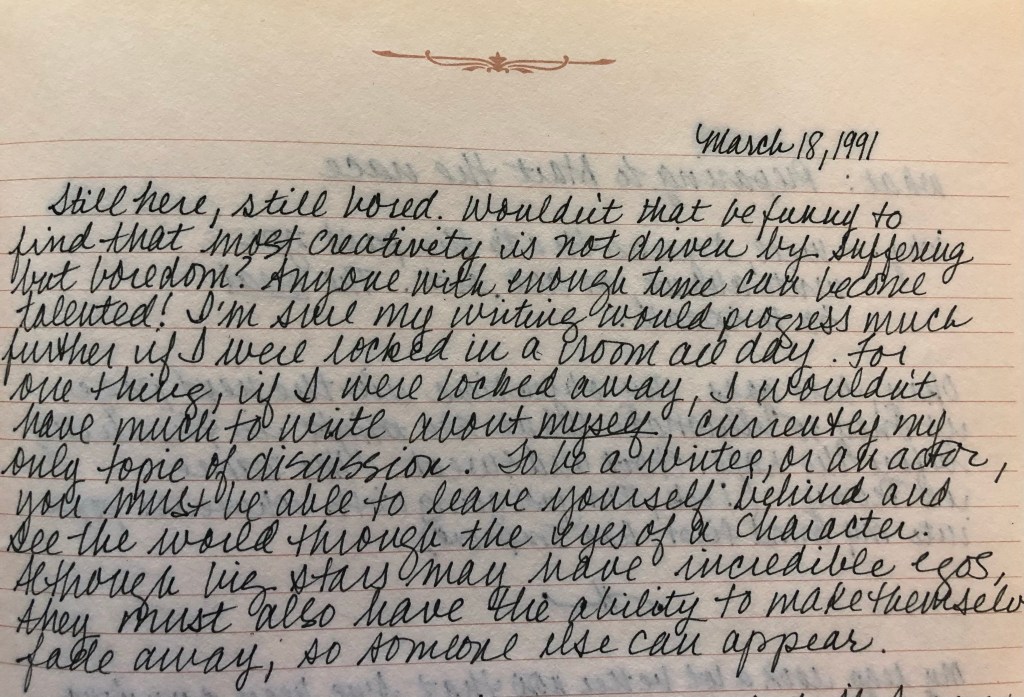 March 18, 1991
Still here, still bored. Wouldn't that be funny to
find that most creativity is not driven by suffering
but boredom? Anyone with enough time can become
talented! I'm sure my writing would progress much
further if I were locked in a room all day. For
one thing, if I were locked away, I wouldn't
have much to write about myself, currently my
only topic of discussion. To be a writer, or an actor,
you must be able to leave yourself behind and
see the world through the eyes of a character.
Although big stars may have incredible egos,
they must also have the ability to make themselv
fade away, so someone else can appear.